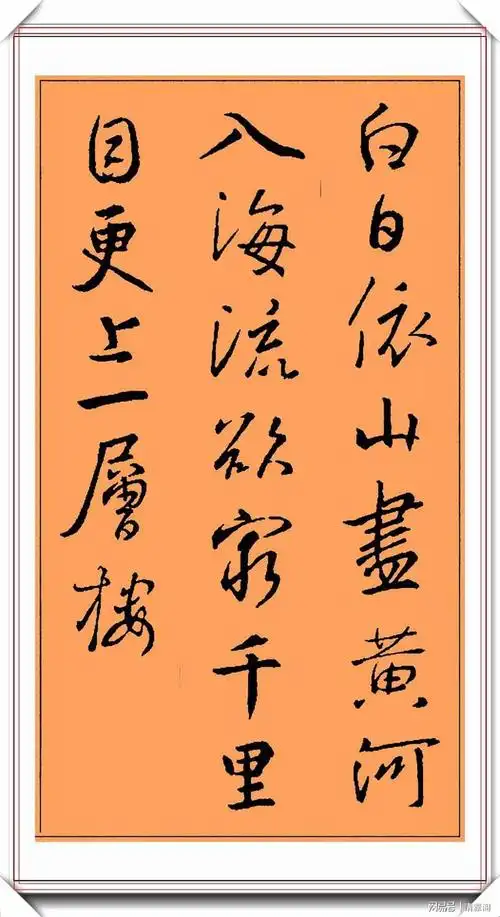 白日依山盡黄河
入海流欲窮千里
目更上一層樓
网易号 | 清雅阁